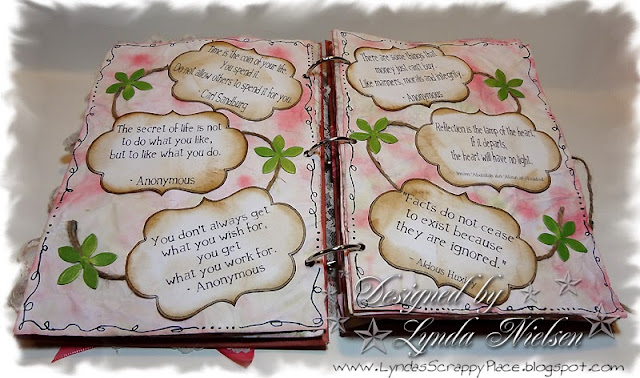 Time is the coin of your life.
You spend it.
Do not allow others to spend it for you.
- Carl Sandburg
The secret of life is not
to do what you like,
but to like what you do.
- Anonymous
You don't always get
what you wish for,
you get
what you work for.
- Anonymous
There are some things that
money just can't buy...
Like manners, morals and integrity.
- Anonymous
Reflection is the lamp of the heart.
If it departs,
the heart will have no light.
"Facts do not cease
to exist because
they are ignored."
- Aldous Huxl
Designed by
Lynda Nielsen
www.LyndasScrappyPlace.blogspot.com